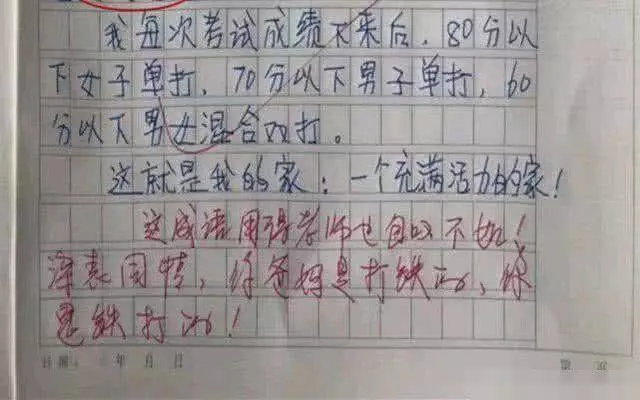 我每次考试成绩下来后，80分以
下女子单打，70分以下男子单打，60
分以下男女混合双打。
这就是我的家：一个充满活力的家！
这成语用得老师也自叹不如！
深表同情，你爸妈是打铁的，你
是铁打的！
日期： 年 月 日